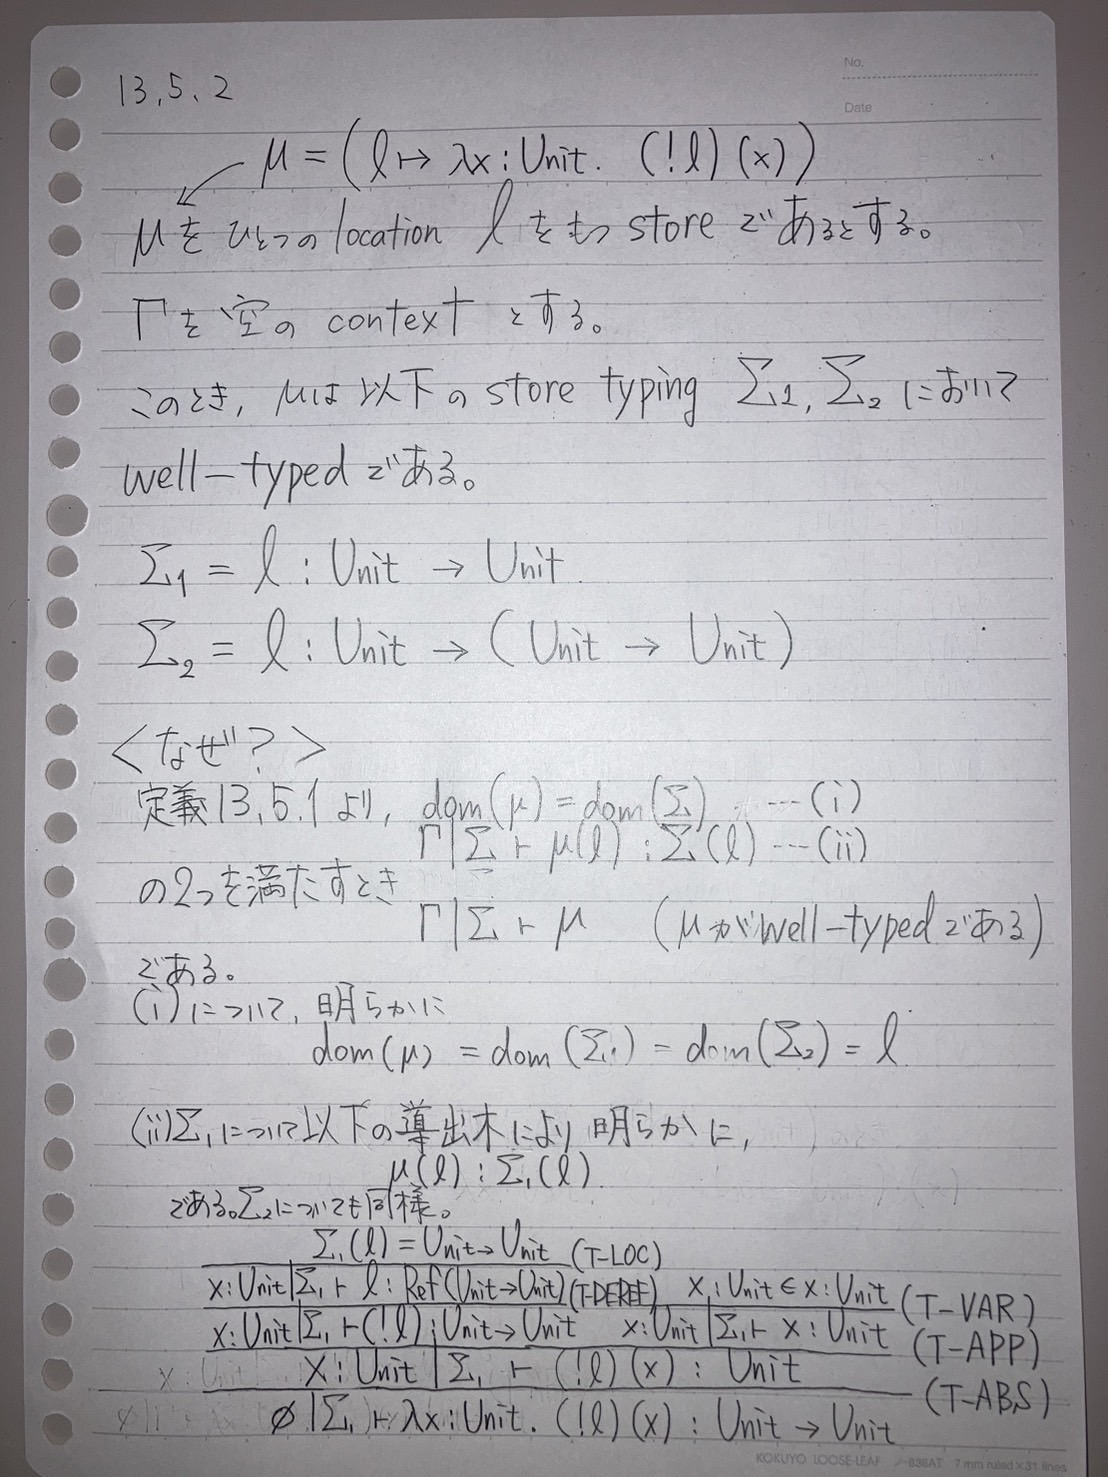 No.
Date
13.5.2
μ = (l ↦ λx:Unit. (!l)(x))
μをひとつのlocation lをもつstoreであるとする。
Γを空のcontextとする。
このとき, μは以下のstore typing Σ1, Σ2において
well-typedである。
Σ1 = l : Unit → Unit
Σ2 = l : Unit → (Unit → Unit)
<なぜ?>
定義13.5.1より, dom(μ) = dom(Σ) ···(i)
Γ|Σ ⊢ μ(l) : Σ(l) ···(ii)
の2つを満たすとき
Γ|Σ ⊢ μ (μがwell-typedである)
である。
(i)について, 明らかに
dom(μ) = dom(Σ1) = dom(Σ2) = l
(ii)Σ1について以下の導出木により明らかに,
μ(l) : Σ1(l)
である。Σ2についても同様。
Σ1(l) = Unit→Unit (T-LOC)
x:Unit|Σ1 ⊢ l : Ref(Unit→Unit) (T-DEREF) x:Unit ∈ x:Unit (T-VAR)
x:Unit|Σ1 ⊢ (!l) : Unit→Unit x:Unit|Σ1 ⊢ x : Unit (T-APP)
x:Unit|Σ1 ⊢ (!l)(x) : Unit (T-ABS)
∅|Σ1 ⊢ λx:Unit. (!l)(x) : Unit → Unit
KOKUYO LOOSE-LEAF ノ-836AT 7 mm ruled×31 lines